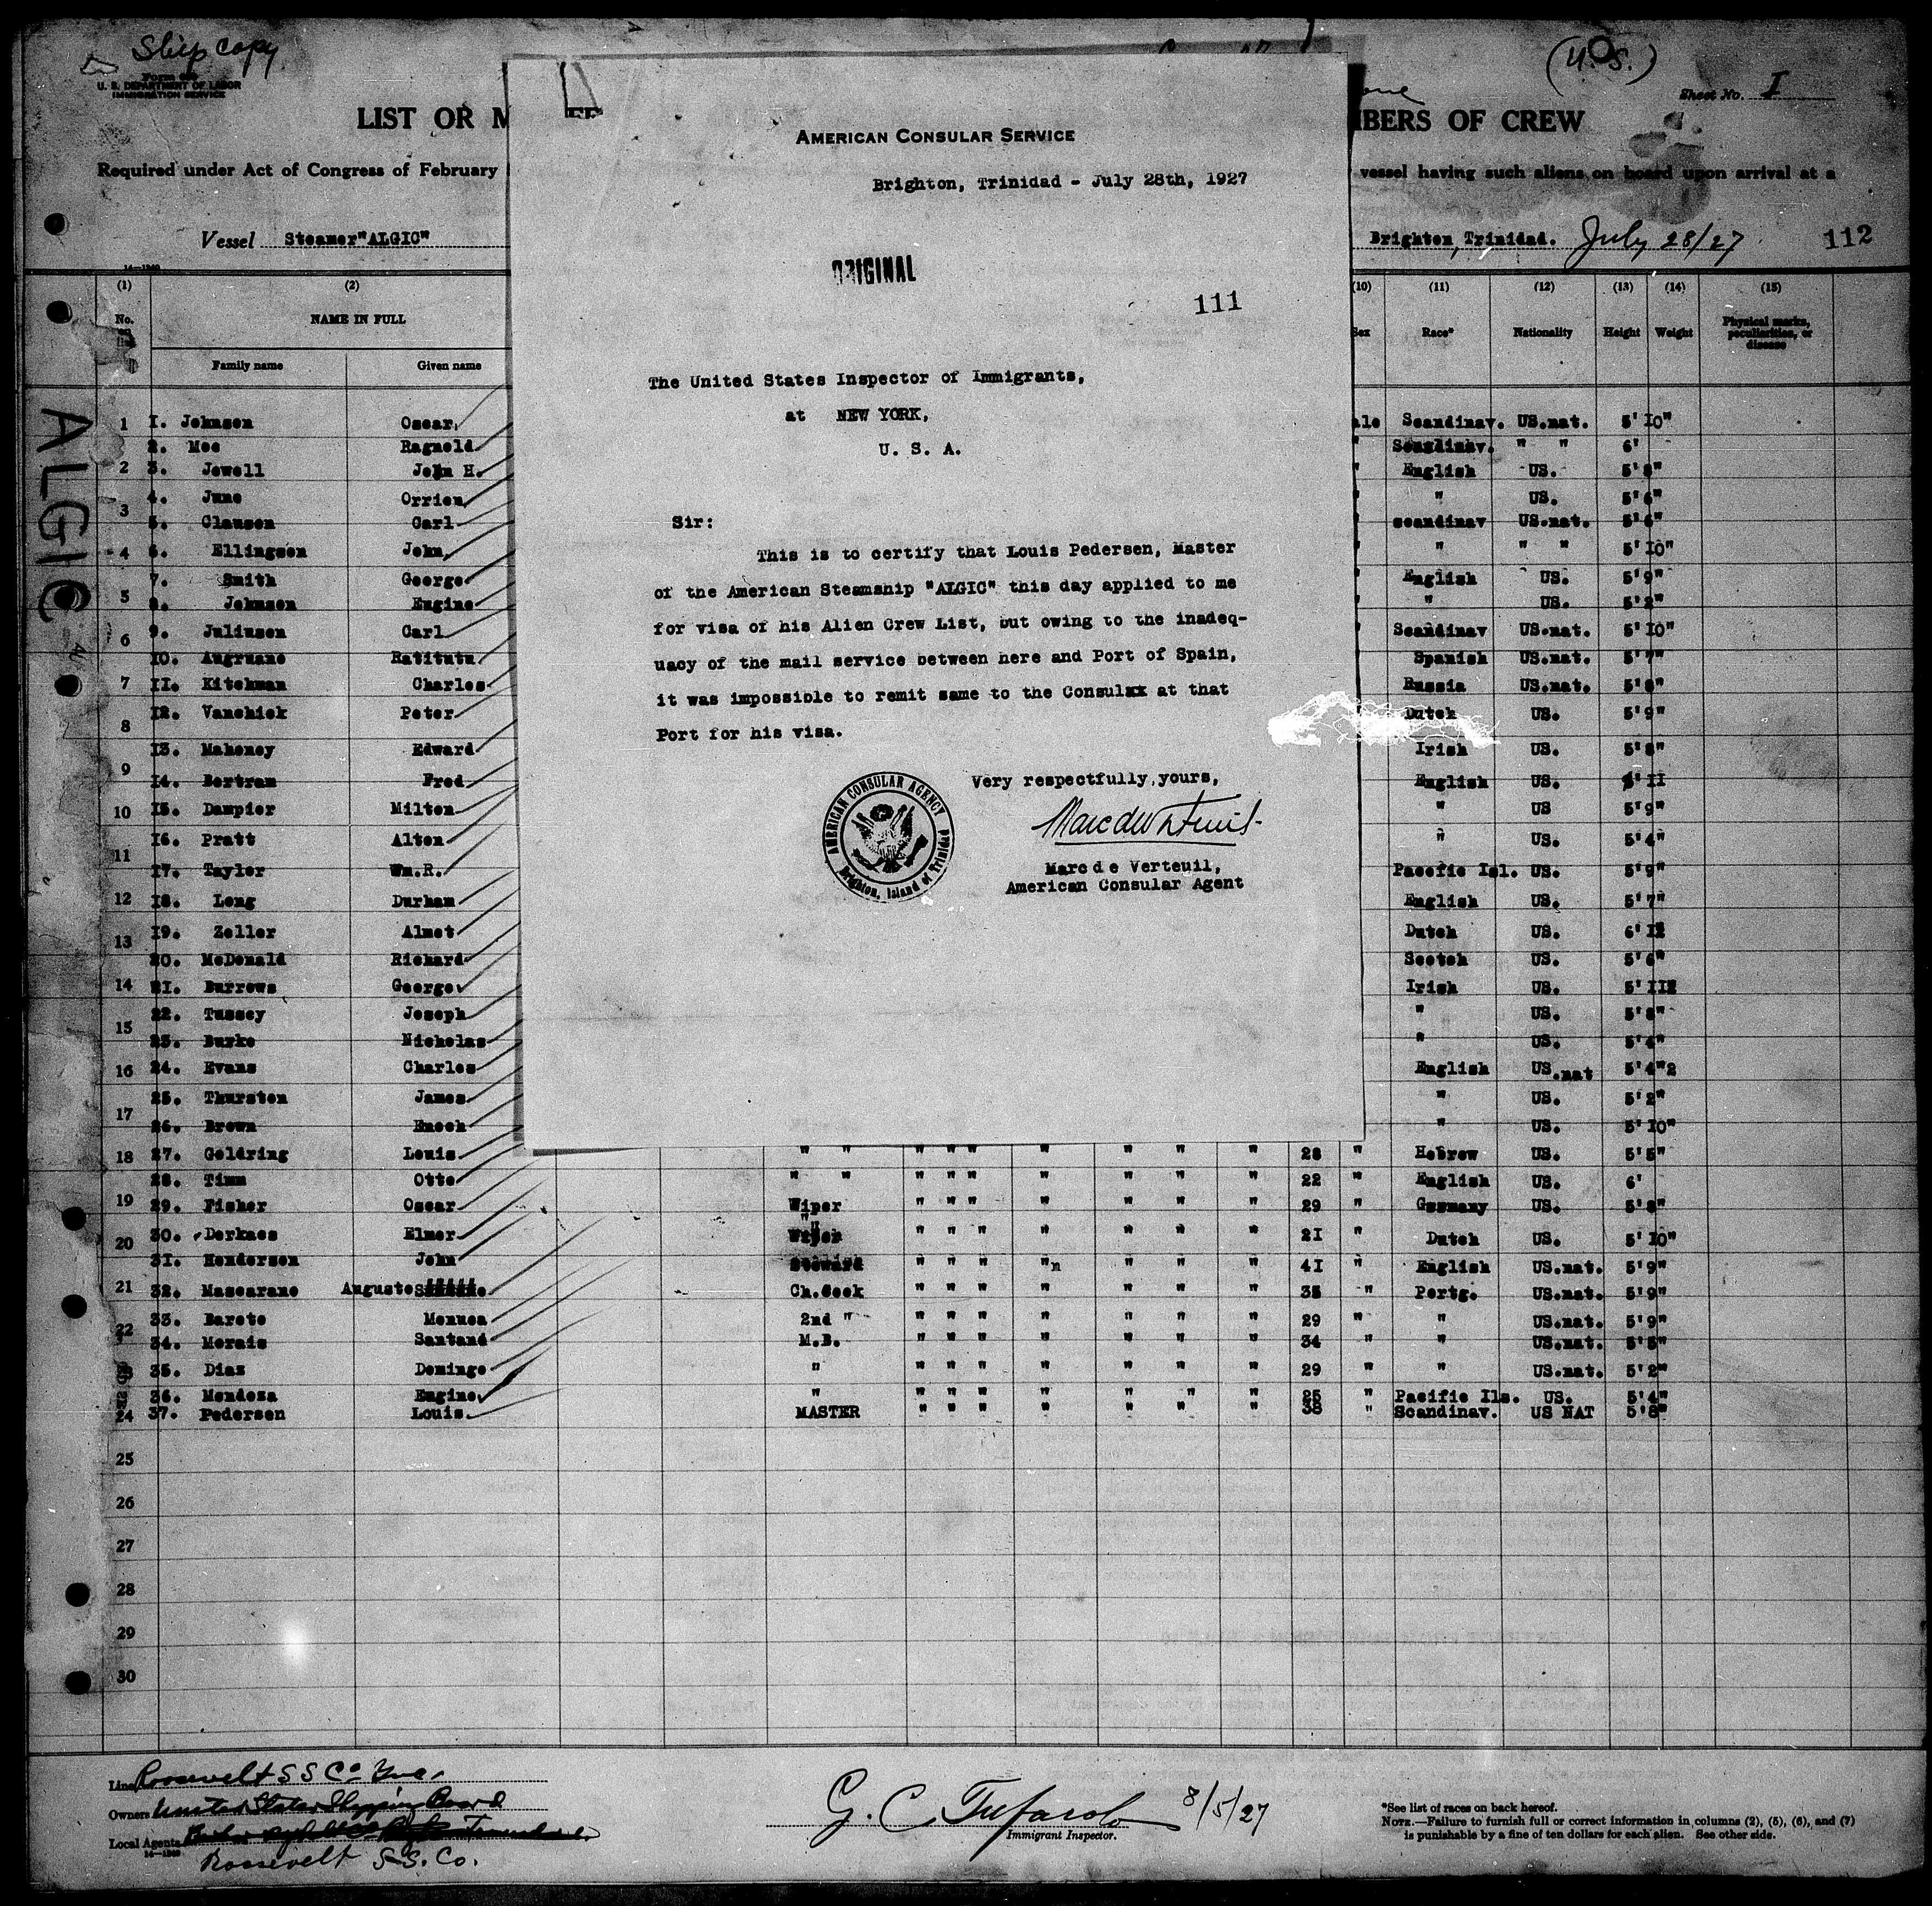 Ship copy
Form 680
U. S. DEPARTMENT OF LABOR
IMMIGRATION SERVICE
(U.S.)
Sheet No. I
LIST OR M
MBERS OF CREW
Required under Act of Congress of February
vessel having such aliens on board upon arrival at a
Vessel Steamer"ALGIC"
Brighton, Trinidad. July 28/27
112
14—1240
ALGIC
AMERICAN CONSULAR SERVICE
Brighton, Trinidad - July 28th, 1927
ORIGINAL
111
The United States Inspector of Immigrants,
at NEW YORK,
U. S. A.
Sir:
This is to certify that Louis Pedersen, Master
of the American Steamship "ALGIC" this day applied to me
for visa of his Alien Crew List, but owing to the inadeq-
uacy of the mail service between here and Port of Spain,
it was impossible to remit same to the Consulxx at that
Port for his visa.
Very respectfully yours,
Marc de Verteuil,
American Consular Agent
AMERICAN CONSULAR AGENCY
Brighton, Island of Trinidad
(1) (2) (10) (11) (12) (13) (14) (15)
No. on list NAME IN FULL Sex Race* Nationality Height Weight Physical marks, peculiarities, or disease
Family name Given name
1 I. Johnsen Oscar ale Scandinav. US.nat. 5' I0"
2. Moe Ragnold " Scandinav. " " 6'
2 3. Jewell John H. " English US. 5'8"
4. June Orrien " " US. 5'6"
3 5. Clausen Carl " scandinav US.nat. 5'6"
4 6. Ellingsen John " " " " 5' I0"
7. Smith George " English US. 5'9"
5 8. Johnsen Eugine " " US. 5'2"
6 9. Juliusen Carl Scandinav US.nat. 5' I0"
I0. Angruane Ratitutu Spanish US.nat. 5'7"
7 II. Kitchman Charles Russia US.nat. 5'8"
8 I2. Vanchick Peter Dutch US. 5'9"
I3. Mahoney Edward Irish US. 5'8"
9 I4. Bertram Fred English US. II
10 I5. Dampier Milton " US 5'9"
I6. Pratt Alton " US. 5'4"
11 I7. Taylor Wm.R. Pacefic Isl. US. 5'9"
12 I8. Long Durham English US. 5'7"
13 I9. Zeller Almet Dutch US. 6'
20. McDonald Richard Scotch US. 5'6"
14 2I. Burrows George Irish US. 5' II
22. Tussey Joseph " US. 5'8"
15 23. Burke Nicholas " US. 5'4"
16 24. Evans Charles English US.nat 5'4"2
25. Thursten James " US. 5'2"
17 26. Brown Enoch " US. 5' I0"
18 27. Goldring Louis " " " " " " " " " 28 " Hebrew US. 5'5"
28. Timm Otto " " " " " " " " " 22 " English US. 6'
19 29. Fisher Oscar Wiper " " " " " " " 29 " Germany US. 5'8"
20 30. Derknes Elmer " " " " " " " 2I " Dutch US. 5' I0"
3I. Henderson John Steward " " " "n " " " 4I " English US.nat. 5'9"
21 32. Mascarane Auguste Ch.Cook " " " " " " " 35 " Portg. US.nat. 5'9"
33. Barote Mennea 2nd " " " " " " " " 29 " " US.nat. 5'9"
22 34. Morais Santand M.B. " " " " " " " 34 " " US.nat. 5'5"
35. Diaz Domingo " " " " " " " " 29 " " US.nat. 5'2"
36. Mendoza Eugine " " " " " " " " 25 " Pacific Ils. US. 5'4"
24 37. Pedersen Louis MASTER " " " " " " " 38 " Scandinav. US NAT 5'8"
25
26
27
28
29
30
Line Roosevelt S S Co Inc.
Owners United States Shipping Board
Local Agents
14—1240
Roosevelt S.S. Co.
8/5/27
Immigrant Inspector.
*See list of races on back hereof.
NOTE.—Failure to furnish full or correct information in columns (2), (5), (6), and (7)
is punishable by a fine of ten dollars for each alien. See other side.